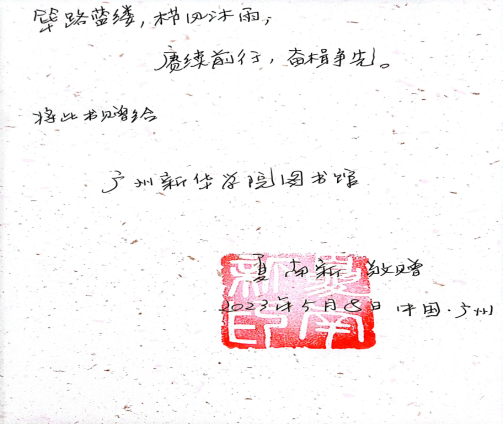 筚路蓝缕,栉风沐雨;
赓续前行,奋楫争先。
将此书赠给
广州新华学院图书馆
夏南新 敬赠
2023年5月8日 中国·广州
夏南
新印